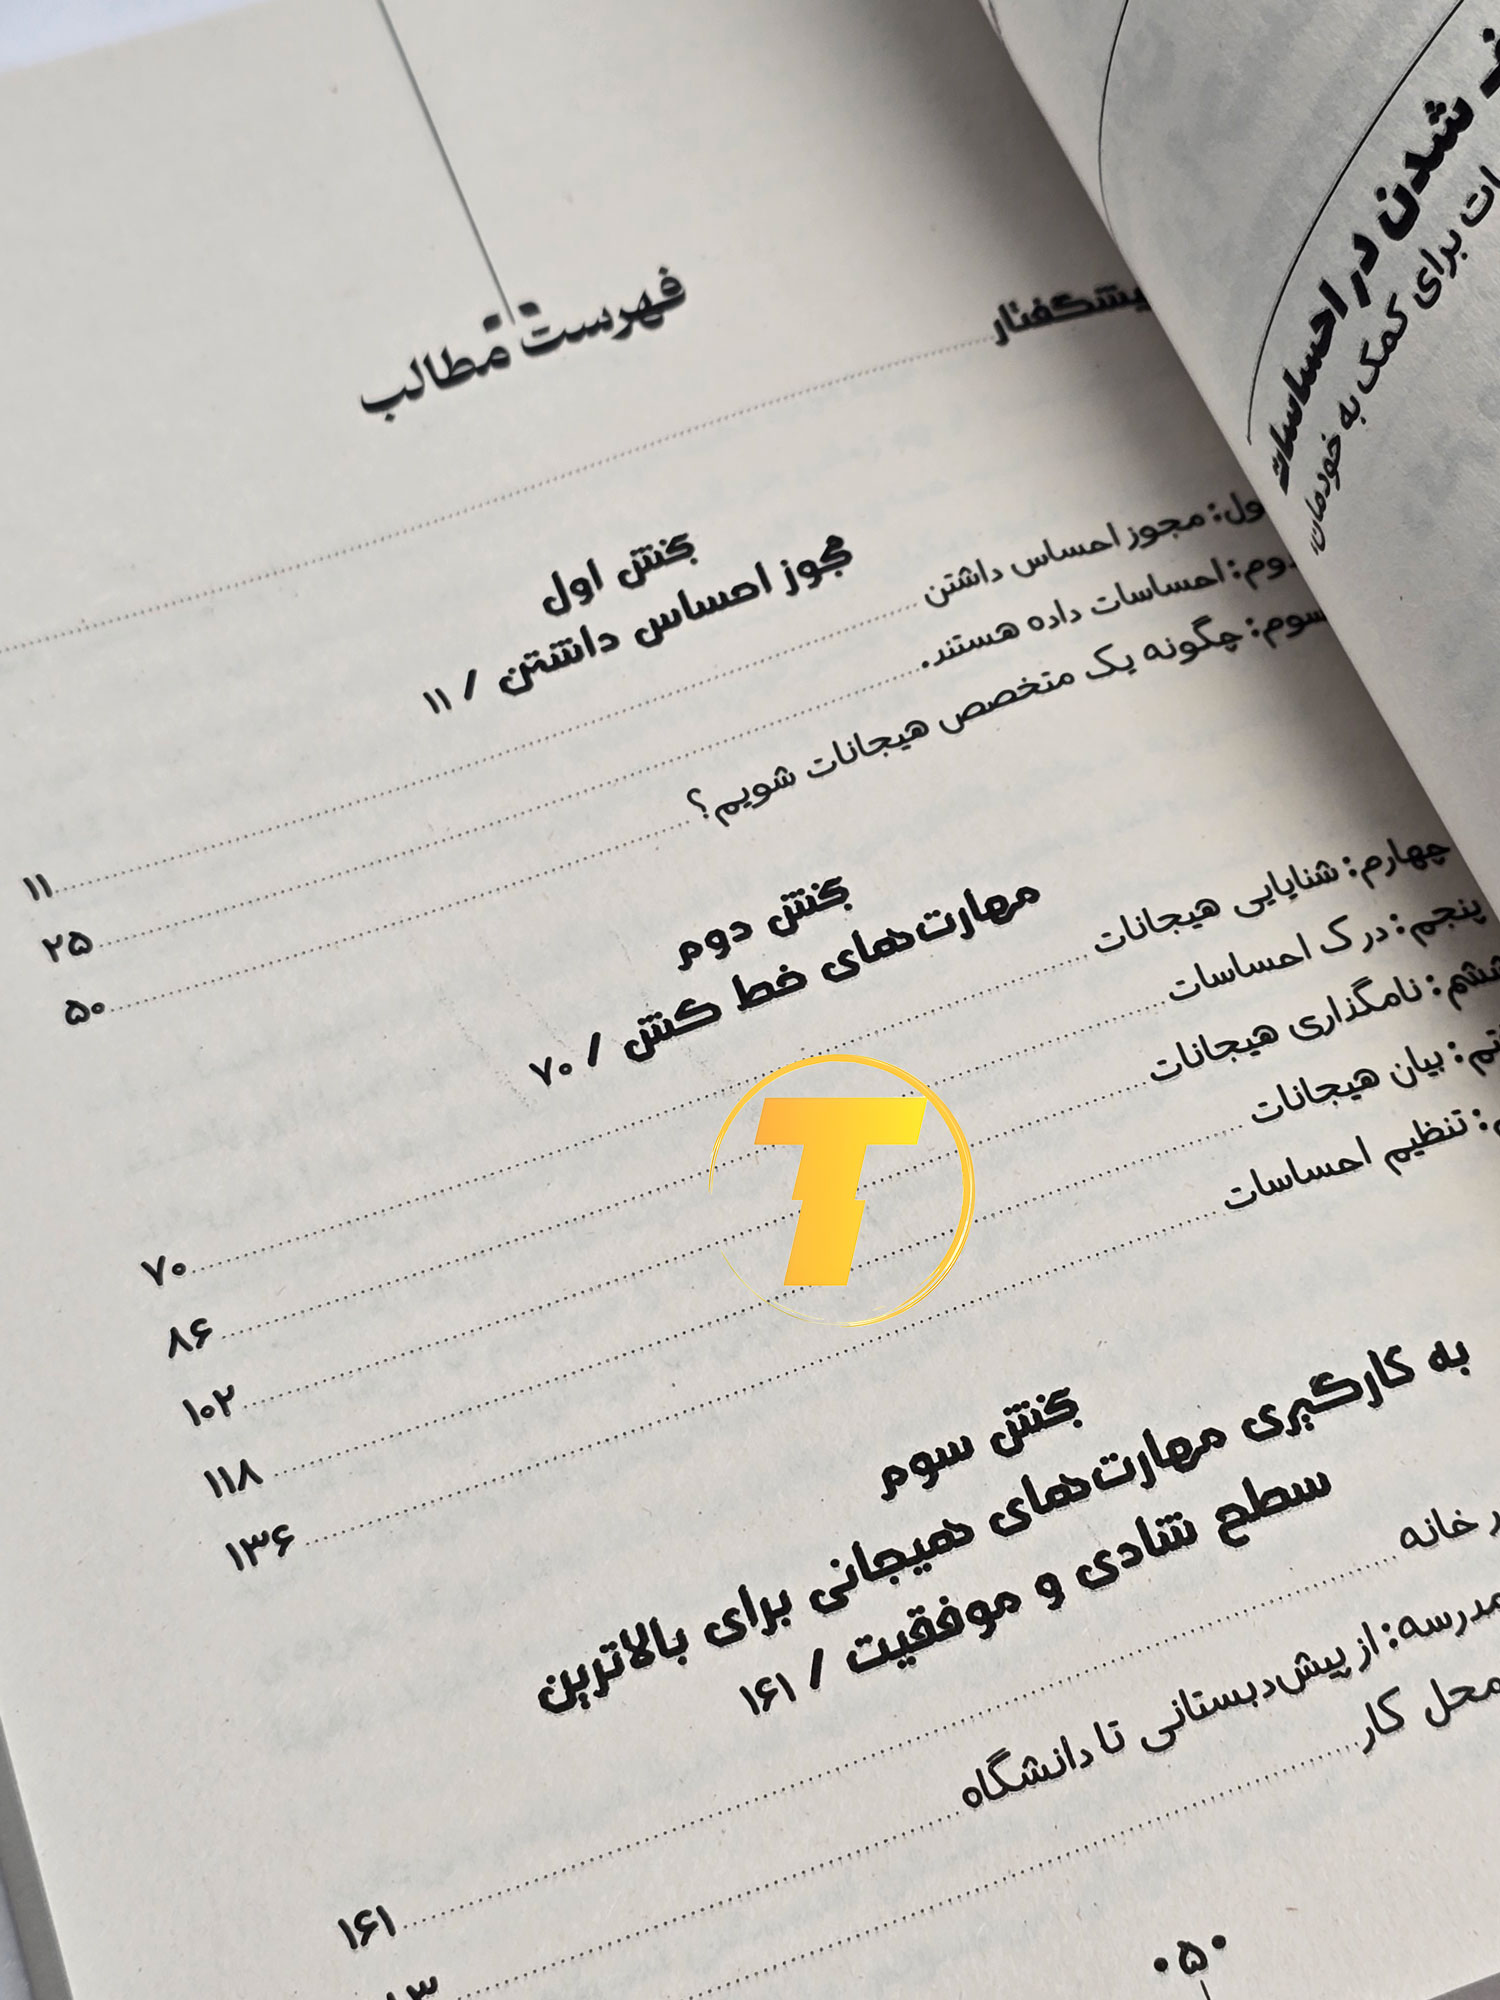 فهرست مطالب
پیشگفتار
بخش اول
مجوز احساس داشتن / ۱۱
اول: مجوز احساس داشتن ۱۱
دوم: احساسات داده هستند. ۲۵
سوم: چگونه یک متخصص هیجانات شویم؟ ۵۰
بخش دوم
مهارت‌های خط کنش / ۷۰
چهارم: شنایایی هیجانات ۷۰
پنجم: درک احساسات ۸۶
ششم: نامگذاری هیجانات ۱۰۲
بیان هیجانات ۱۱۸
تنظیم احساسات ۱۳۶
بخش سوم
به کارگیری مهارت‌های هیجانی برای بالاترین
سطح شادی و موفقیت / ۱۶۱
خانه ۱۶۱
مدرسه: از پیش‌دبستانی تا دانشگاه
محل کار
۵
شدن در احساسات
برای کمک به خودمان،
T